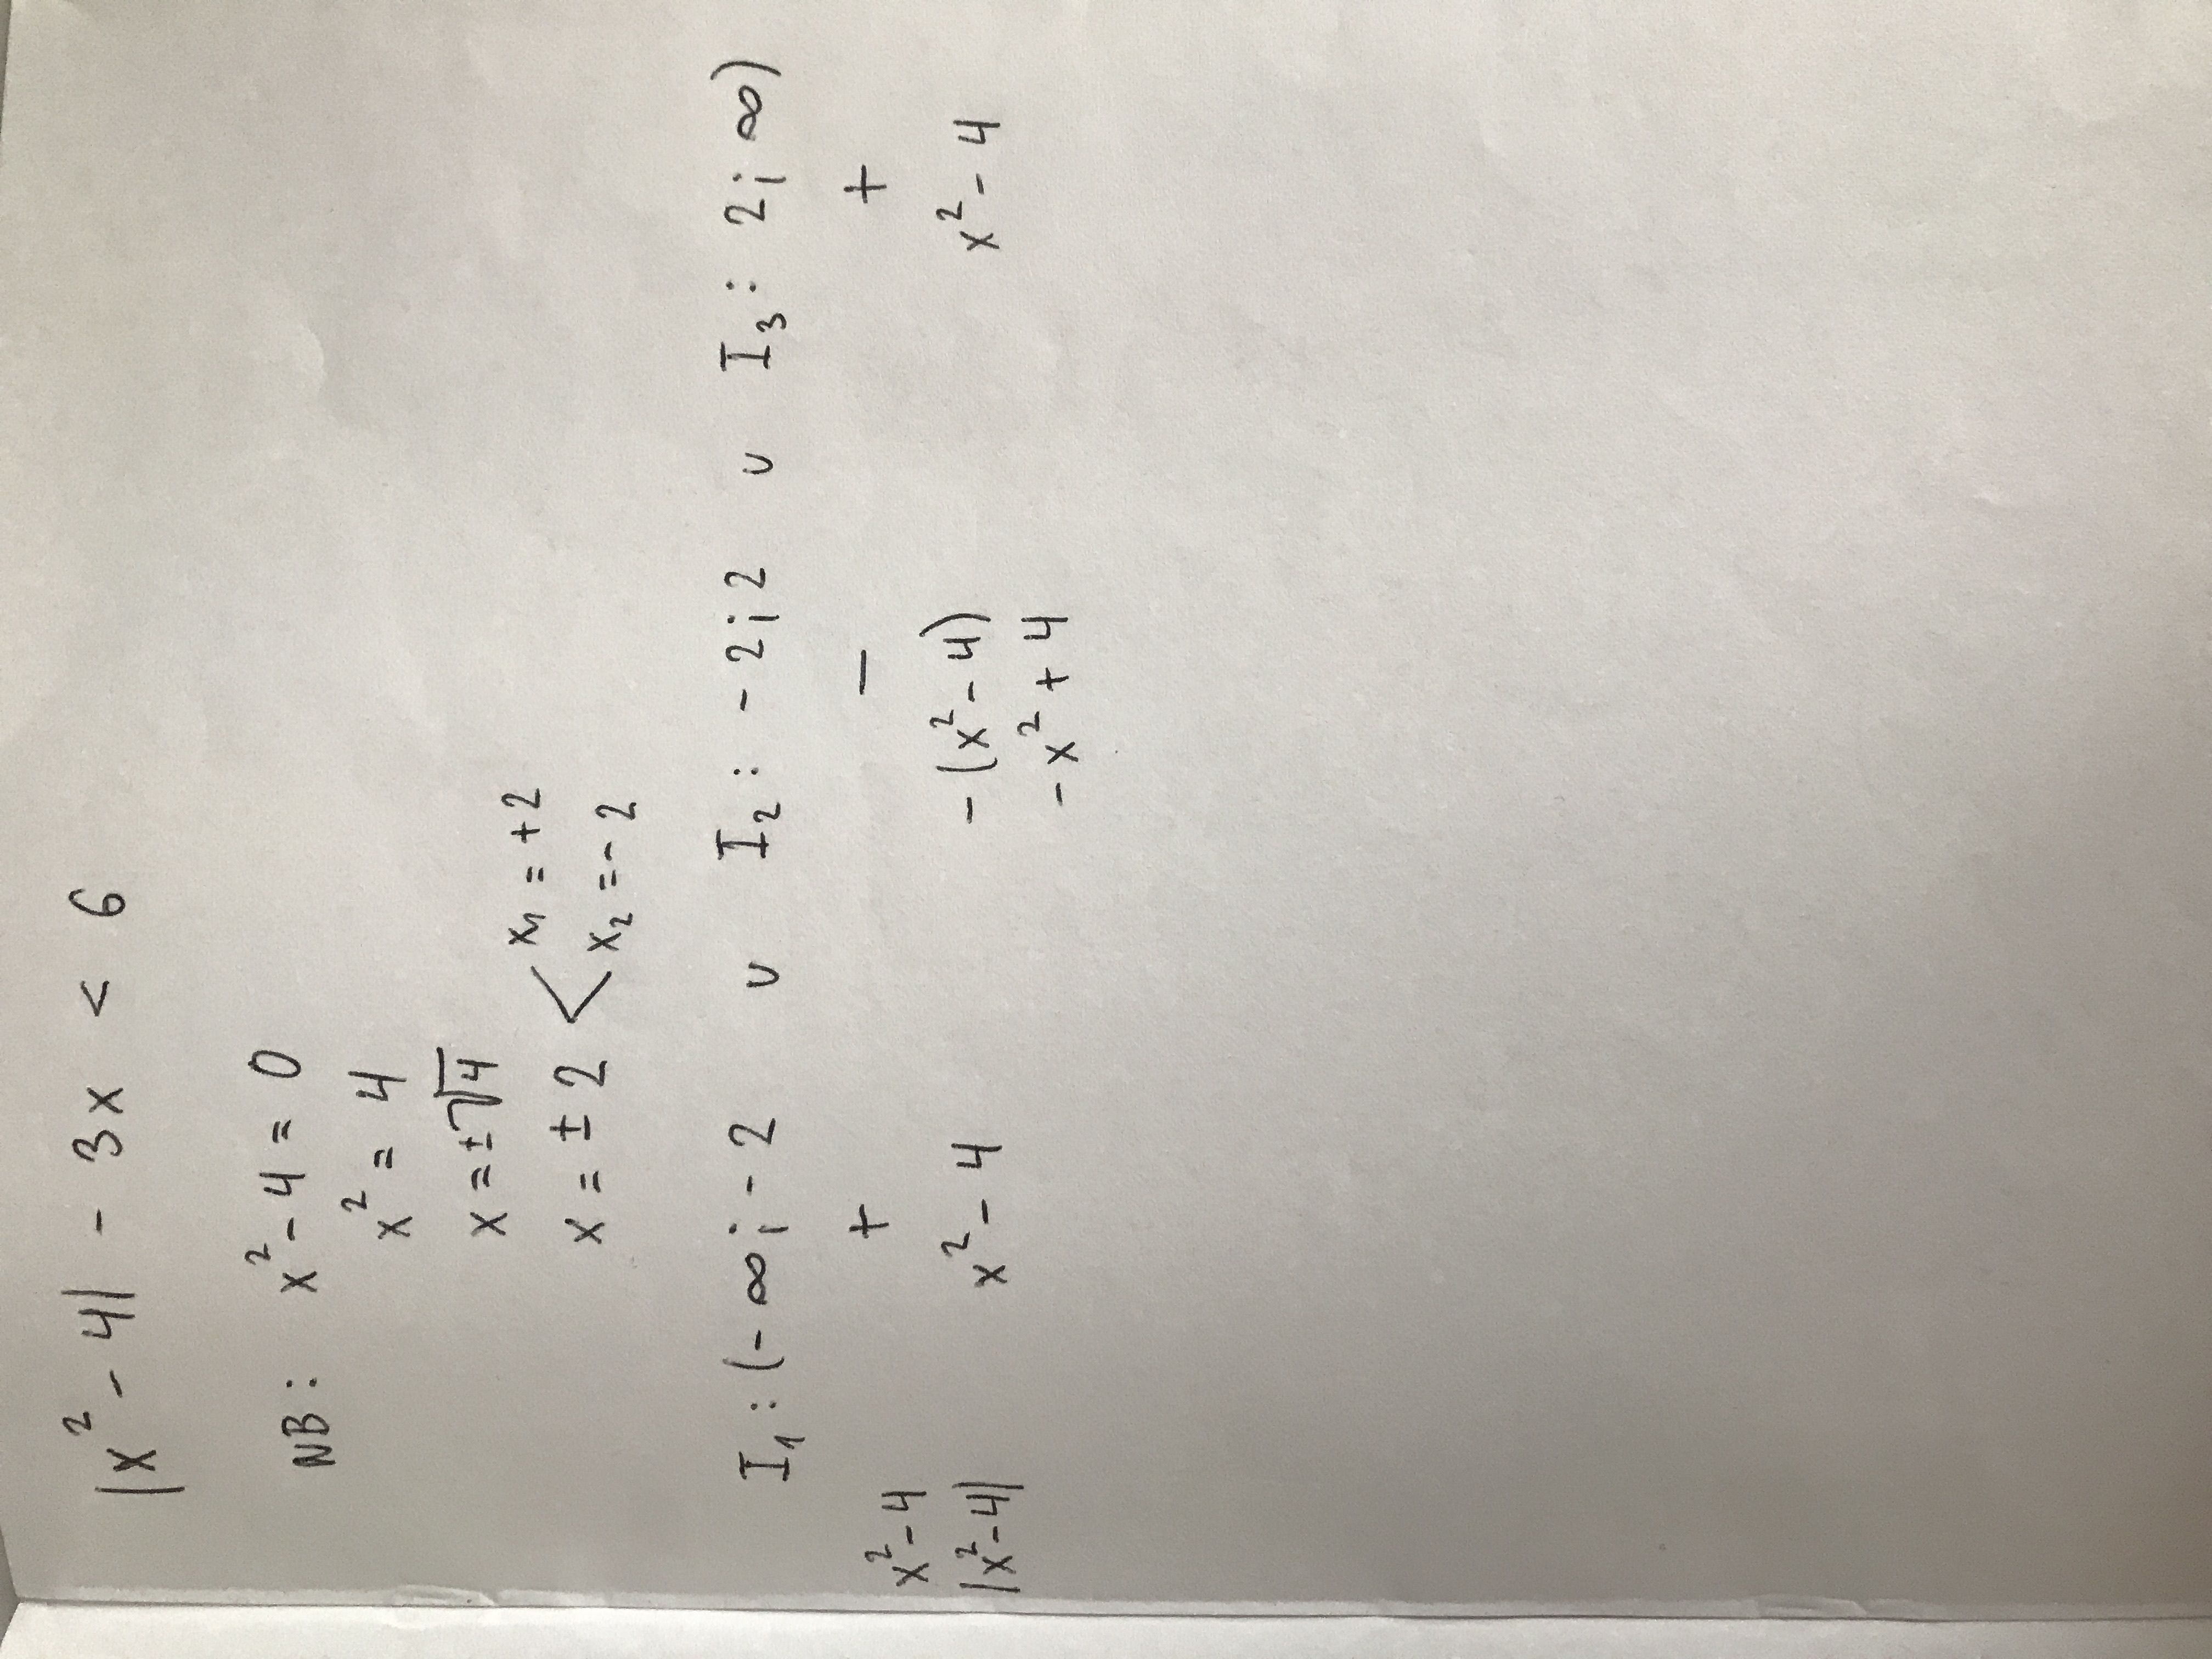 |x² - 4| - 3x < 6
NB: x² - 4 = 0
x² = 4
x = ±√4
x = ± 2 < x₁ = +2
x₂ = - 2
I₁ : (- ∞; - 2 ∪ I₂ : - 2; 2 ∪ I₃ : 2; ∞)
x² - 4 + - +
|x² - 4| x² - 4 - (x² - 4) x² - 4
- x² + 4